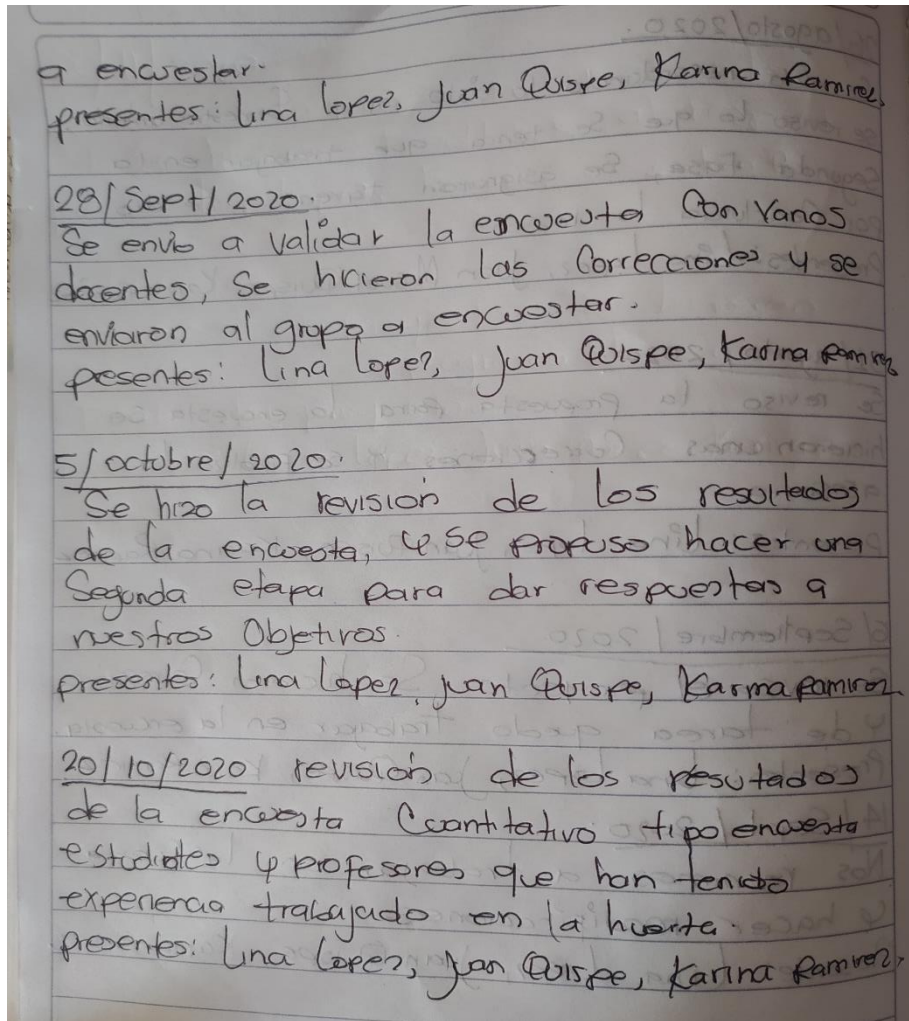 a encuestar.
presentes: Lina lopez, Juan Quispe, Karina Ramirez
28/Sept/2020.
Se envio a validar la encuesta Con Varios
docentes, Se hicieron las Correcciones y se
enviaron al grupo a encuestar.
presentes: Lina lopez, Juan Quispe, Karina Ramirez
5/octubre/2020.
Se hizo la revisión de los resultados
de la encuesta, y se propuso hacer una
Segunda etapa para dar respuestas a
nuestros Objetivos.
presentes: Lina Lopez, Juan Quispe, Karina Ramirez
20/10/2020 revisión de los resutados
de la encuesta Cuantitativo tipo encuesta
estudiates y profesores que han tenido
experiencia trabajado en la huerta.
presentes: Lina Lopez, Juan Quispe, Karina Ramirez,